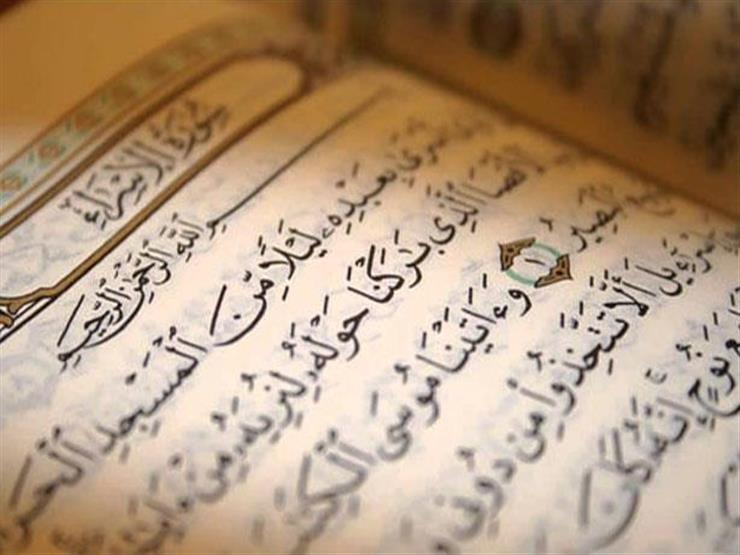 سُورَةُ الْإِسْرَاءِ
بِسْمِ اللَّهِ الرَّحْمَٰنِ الرَّحِيمِ
أَسْرَىٰ بِعَبْدِهِۦ لَيْلًا مِّنَ الْمَسْجِدِ الْحَرَ
الْأَقْصَا الَّذِى بَٰرَكْنَا حَوْلَهُۥ لِنُرِيَهُۥ مِنْ ءَايَٰتِ
الْبَصِيرُ ١ وَءَاتَيْنَا مُوسَى الْكِتَٰبَ
إِسْرَٰٓءِيلَ أَلَّا تَتَّخِذُوا۟ مِن دُونِى
مَعَ نُوحٍ إِنَّهُۥ كَانَ